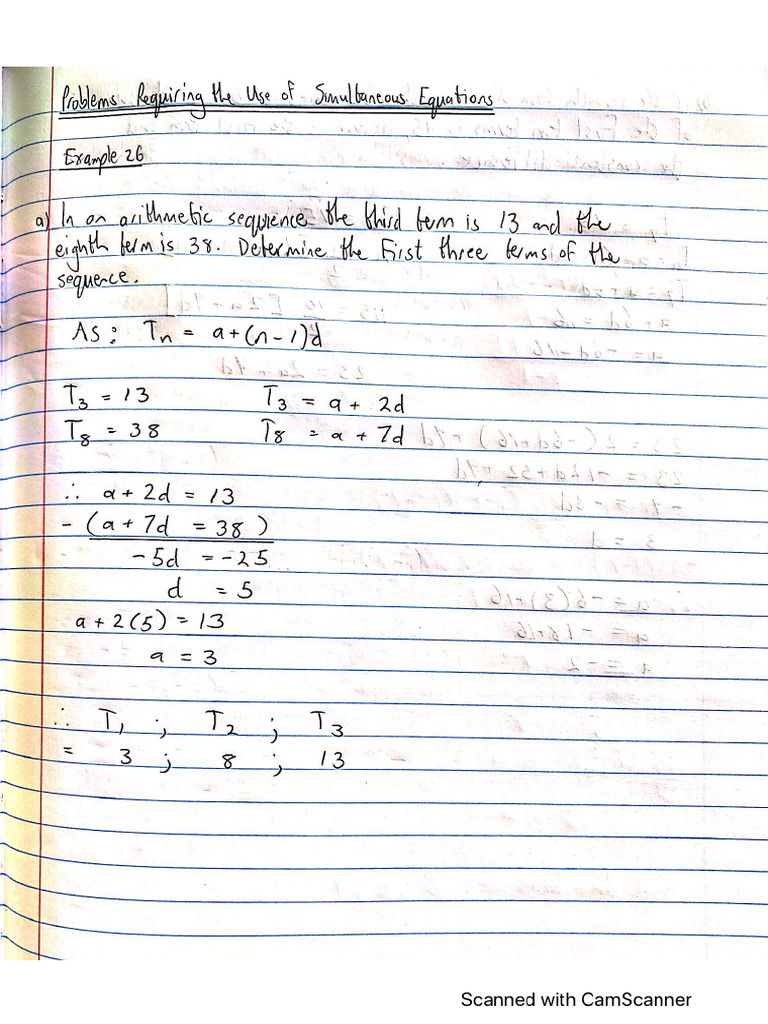 Problems Requiring the Use of Simultaneous Equations
Example 26
a) In an arithmetic sequence the third term is 13 and the
eighth term is 38. Determine the first three terms of the
sequence.
AS: Tn = a+(n-1)d
T3 = 13 T3 = a + 2d
T8 = 38 T8 = a + 7d
∴ a + 2d = 13
- (a + 7d = 38)
-5d = -25
d = 5
a + 2(5) = 13
a = 3
∴ T1 ; T2 ; T3
= 3 ; 8 ; 13
Scanned with CamScanner